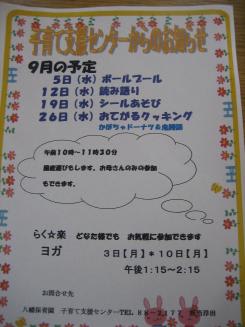 子育て支援センターからのお知らせ
9月の予定
5日（水）ボールプール
12日（水）読み語り
19日（水）シールあそび
26日（水）おてがるクッキング
かぼちゃドーナツ＆
午前10時～11時30分
お母さんのみの参加
もできます。
らく☆楽 どなた様でも お気軽に参加できます
ヨガ 3日【月】＊10日【月】
午後1:15～2:15
お問合せ先
八幡保育園 子育て支援センターTEL 88-2177